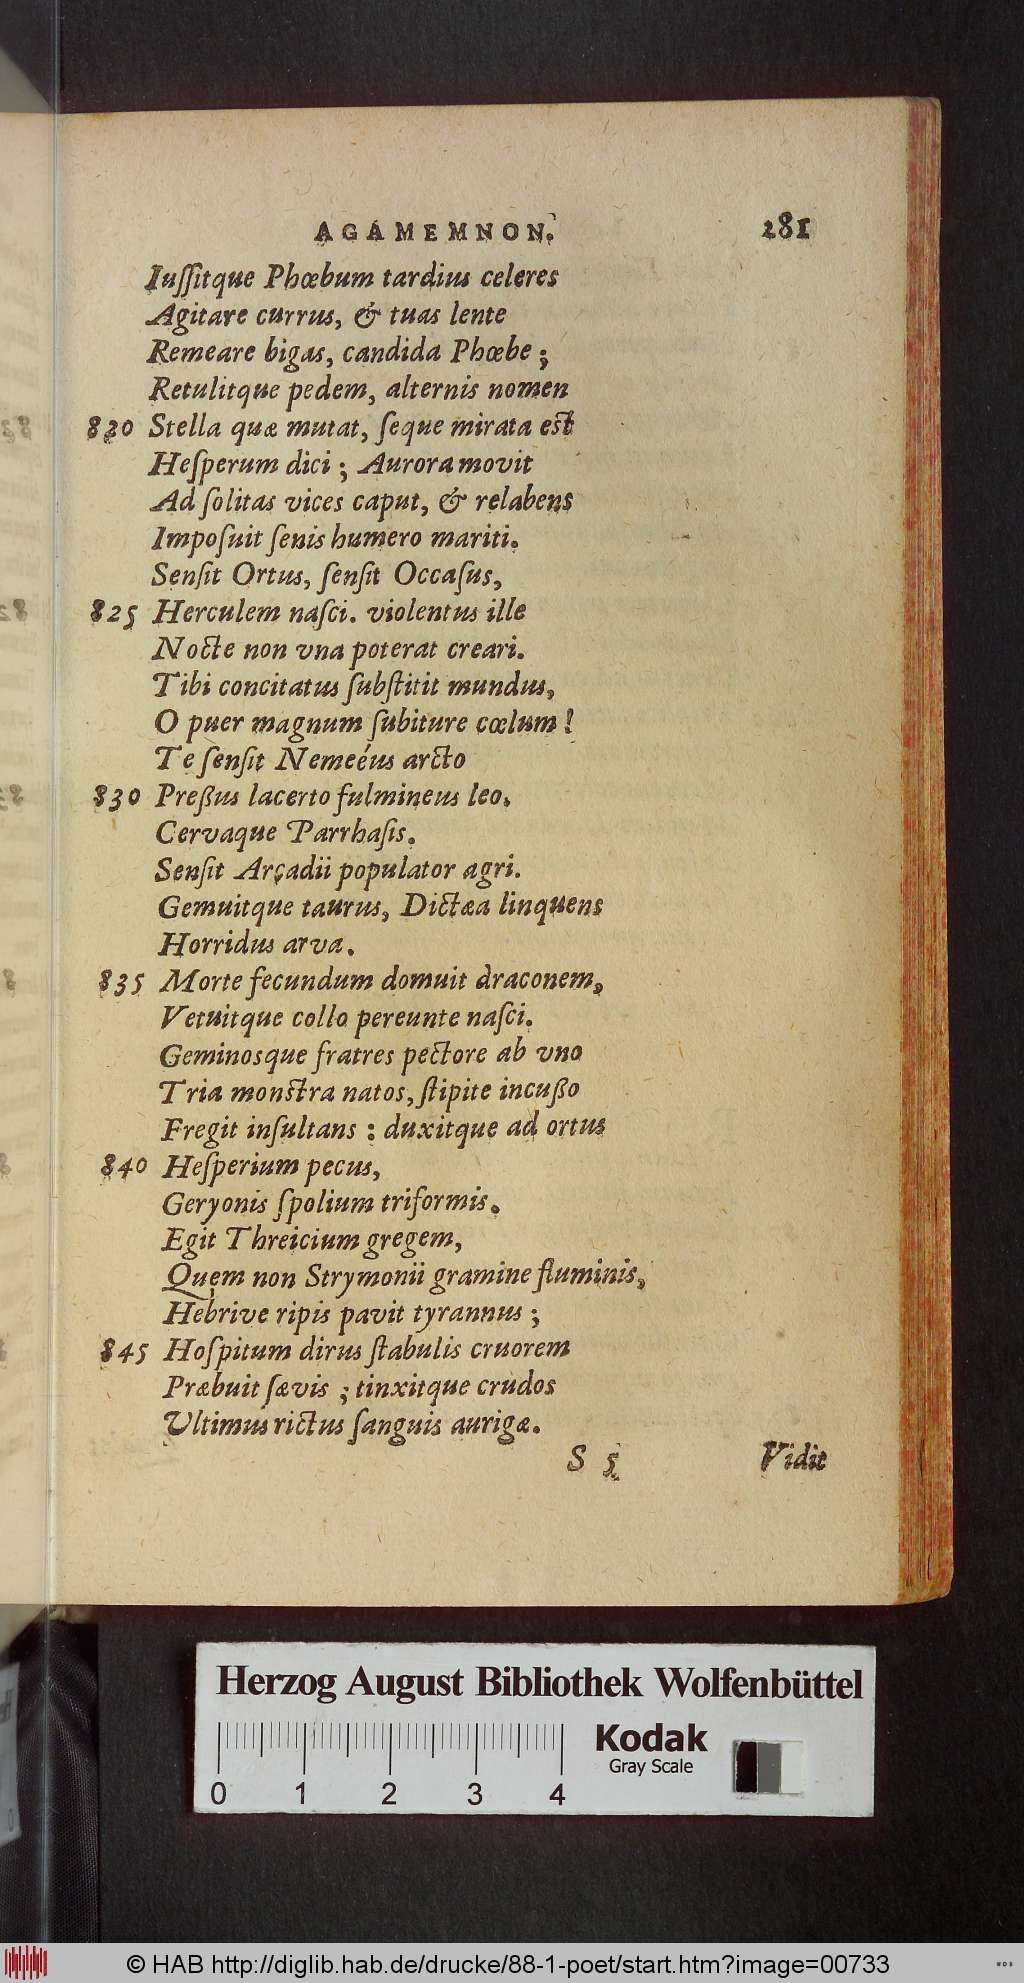 AGAMEMNON. 281
Iuſſitque Phœbum tardius celeres
Agitare currus, & tuas lente
Remeare bigas, candida Phœbe;
Retulitque pedem, alternis nomen
820 Stella quæ mutat, ſeque mirata est
Heſperum dici; Aurora movit
Ad ſolitas vices caput, & relabens
Impoſuit ſenis humero mariti.
Senſit Ortus, ſenſit Occaſus,
825 Herculem naſci. violentus ille
Nocte non vna poterat creari.
Tibi concitatus ſubſtitit mundus,
O puer magnum ſubiture cœlum!
Te ſenſit Nemeéus arcto
830 Preßus lacerto fulmineus leo.
Cervaque Parrhaſis.
Senſit Arcadii populator agri.
Gemuitque taurus, Dictæa linquens
Horridus arva.
835 Morte fecundum domuit draconem,
Vetuitque collo pereunte naſci.
Geminosque fratres pectore ab vno
Tria monstra natos, ſtipite incußo
Fregit inſultans: duxitque ad ortus
840 Heſperium pecus,
Geryonis ſpolium triformis.
Egit Threicium gregem,
Quem non Strymonii gramine fluminis,
Hebrive ripis pavit tyrannus;
845 Hoſpitum dirus ſtabulis cruorem
Præbuit ſævis; tinxitque crudos
Ultimus rictus ſanguis aurigæ.
S 5 Vidit
Herzog August Bibliothek Wolfenbüttel
Kodak
Gray Scale
0 1 2 3 4
© HAB http://diglib.hab.de/drucke/88-1-poet/start.htm?image=00733